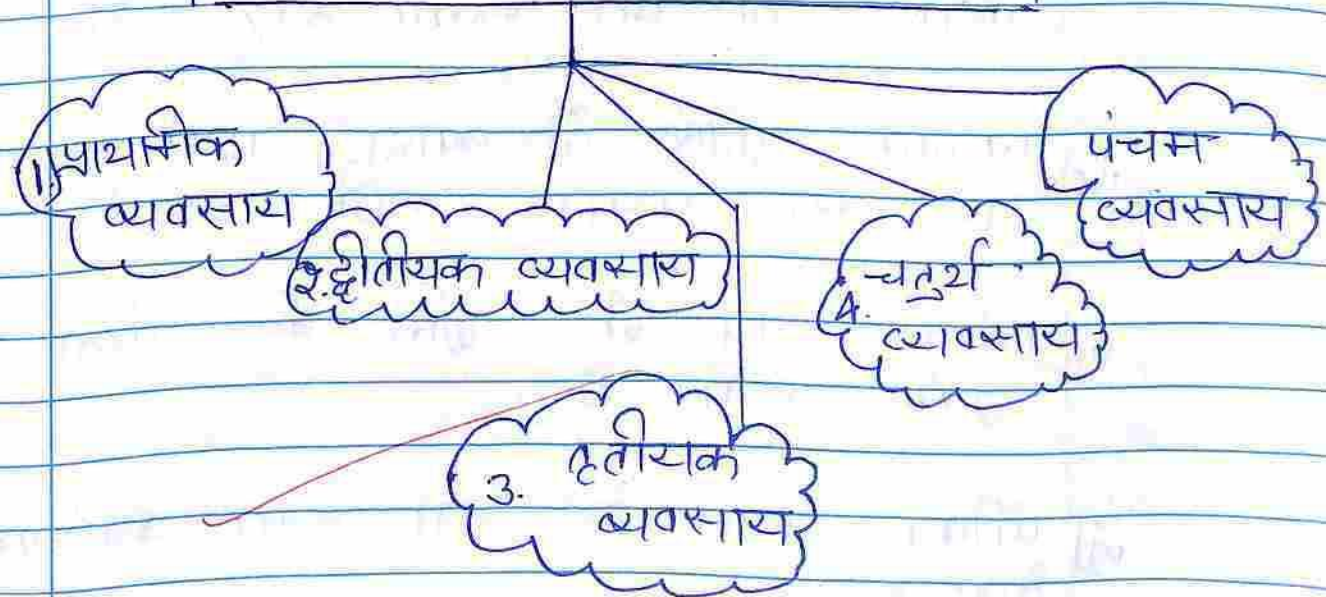 1. प्राथमिक
व्यवसाय
2. द्वीतीयक व्यवसाय
3. तृतीयक
व्यवसाय
4. चतुर्थ
व्यवसाय
पंचम
व्यवसाय